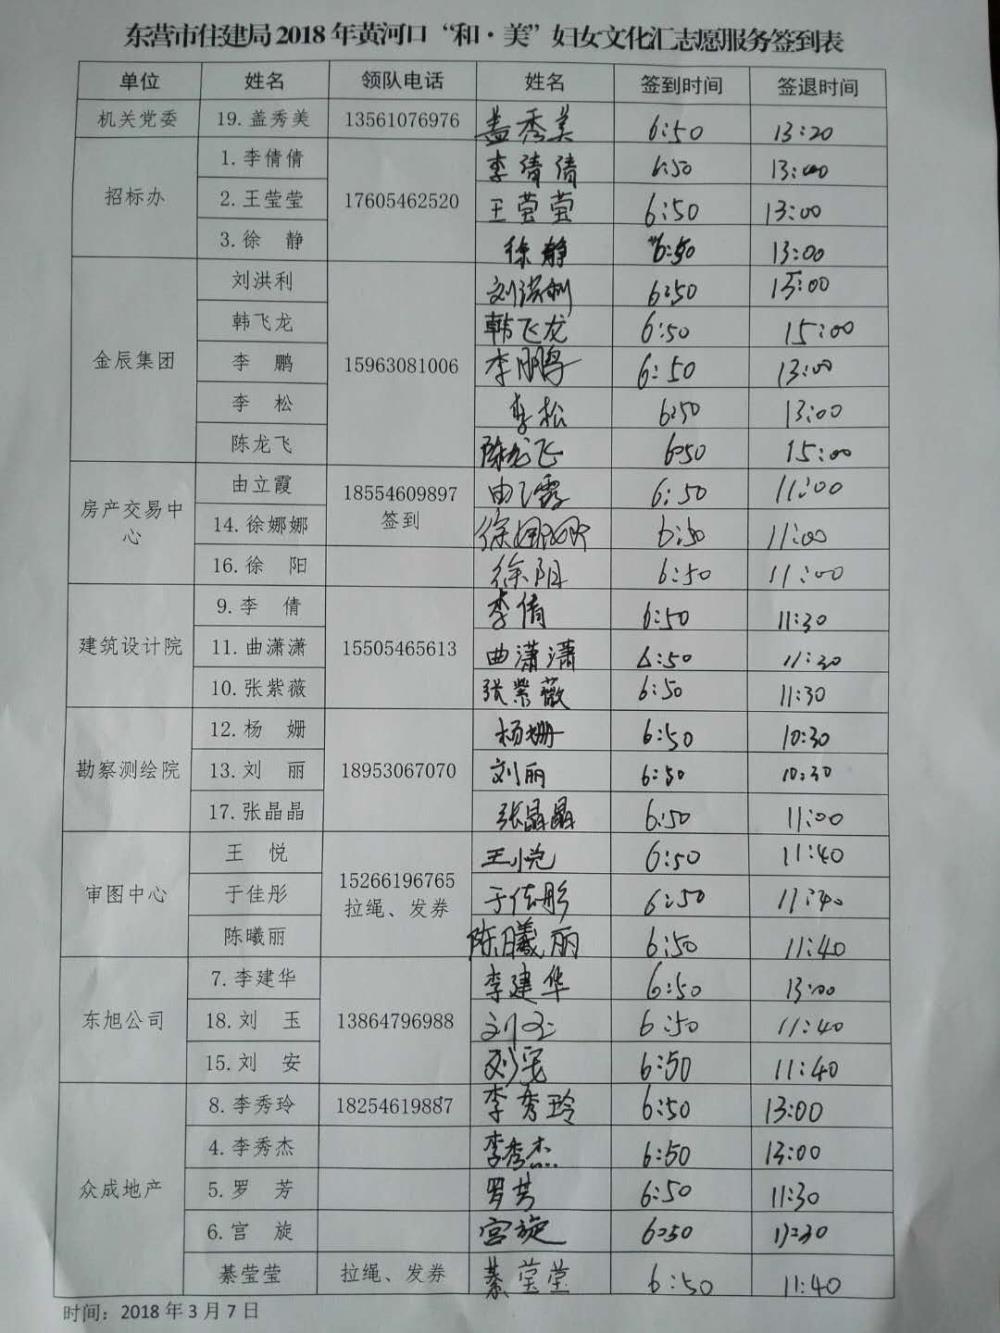 东营市住建局2018年黄河口“和·美”妇女文化汇志愿服务签到表
单位 姓名 领队电话 姓名 签到时间 签退时间
机关党委 19.盖秀美 13561076976 盖秀美 6:50 13:20
招标办 1.李倩倩 17605462520 李倩倩 6:50 13:00
2.王莹莹 王莹莹 6:50 13:00
3.徐 静 徐静 6:50 13:00
金辰集团 刘洪利 15963081006 刘洪利 6:50 15:00
韩飞龙 韩飞龙 6:50 15:00
李 鹏 李鹏 6:50 13:00
李 松 李松 6:50 13:00
陈龙飞 陈龙飞 6:50 15:00
房产交易中心 由立霞 18554609897 签到 由立霞 6:50 11:00
14.徐娜娜 徐娜娜 6:50 11:00
16.徐 阳 徐阳 6:50 11:00
建筑设计院 9.李 倩 15505465613 李倩 6:50 11:30
11.曲潇潇 曲潇潇 6:50 11:30
10.张紫薇 张紫薇 6:50 11:30
勘察测绘院 12.杨 姗 18953067070 杨姗 6:50 10:30
13.刘 丽 刘丽 6:50 10:30
17.张晶晶 张晶晶 6:50 11:00
审图中心 王 悦 15266196765 拉绳、发券 王悦 6:50 11:40
于佳彤 于佳彤 6:50 11:40
陈曦丽 陈曦丽 6:50 11:40
东旭公司 7.李建华 13864796988 李建华 6:50 13:00
18.刘 玉 刘玉 6:50 11:40
15.刘 安 刘安 6:50 11:40
众成地产 8.李秀玲 18254619887 李秀玲 6:50 13:00
4.李秀杰 李秀杰 6:50 13:00
5.罗 芳 罗芳 6:50 11:30
6.宫 旋 宫旋 6:50 11:30
綦莹莹 拉绳、发券 綦莹莹 6:50 11:40
时间：2018年3月7日